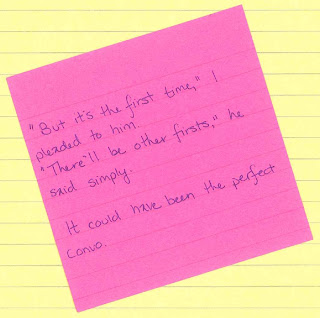 "But it's the first time," I
pleaded to him.
"There'll be other firsts," he
said simply.
It could have been the perfect
convo.